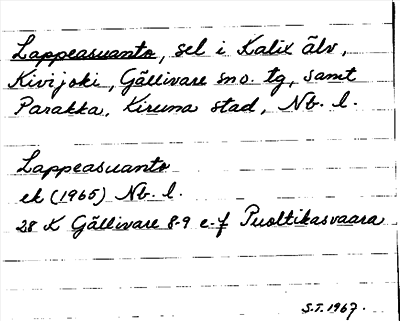 Lappeasuanto, sel i Kalix älv,
Kivijoki, Gällivare sno. tg, samt
Parakka, Kiruna stad, Nb. l.
Lappeasuanto
ek (1965) Nb. l.
28 K Gällivare 8-9 e-f Puoltikasvaara
S.T. 1967.